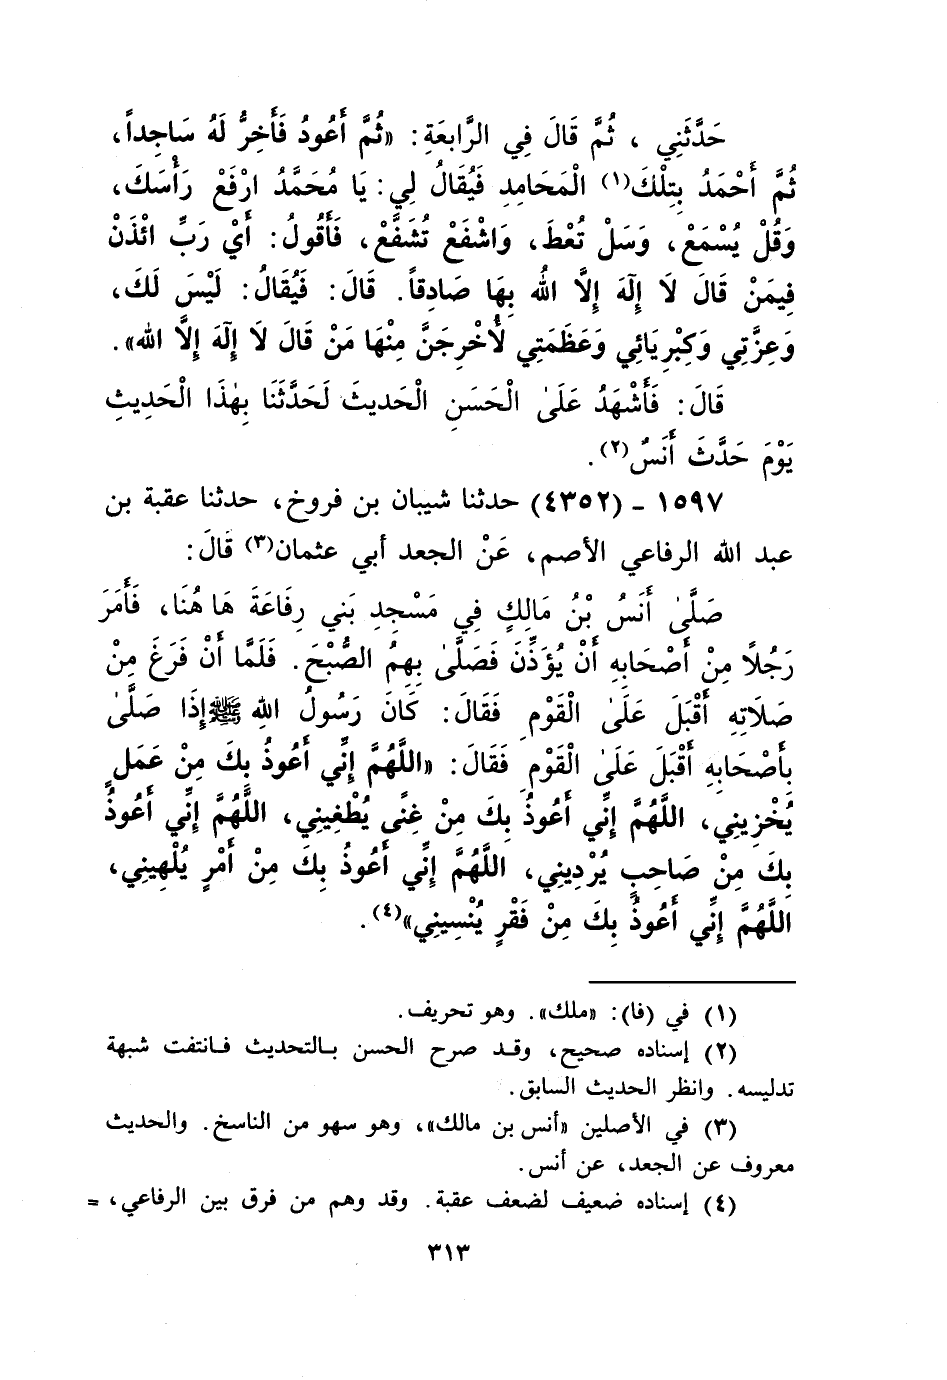 حَدَّثَنِي ، ثُمَّ قَالَ فِي الرَّابِعَةِ: «ثُمَّ أَعُودُ فَأَخِرُّ لَهُ سَاجِداً،
ثُمَّ أَحْمَدُ بِتِلْكَ(١) الْمَحَامِدِ فَيُقَالُ لِي: يَا مُحَمَّدُ ارْفَعْ رَأْسَكَ،
وَقُلْ يُسْمَعْ، وَسَلْ تُعْطَ، وَاشْفَعْ تُشَفَّعْ، فَأَقُولُ: أَيْ رَبِّ ائْذَنْ
فِيمَنْ قَالَ لَا إِلٰهَ إِلَّا اللهُ بِهَا صَادِقاً. قَالَ: فَيُقَالُ: لَيْسَ لَكَ،
وَعِزَّتِي وَكِبْرِيَائِي وَعَظَمَتِي لَأُخْرِجَنَّ مِنْهَا مَنْ قَالَ لَا إِلٰهَ إِلَّا الله».
قَالَ: فَأَشْهَدُ عَلَىٰ الْحَسَنِ الْحَديثَ لَحَدَّثَنَا بِهٰذَا الْحَدِيثِ
يَوْمَ حَدَّثَ أَنَسٌ(٢).
١٥٩٧ ـ (٤٣٥٢) حدثنا شيبان بن فروخ، حدثنا عقبة بن
عبد الله الرفاعي الأصم، عَنْ الجعد أبي عثمان(٣) قَالَ:
صَلَّىٰ أَنَسُ بْنُ مَالِكٍ فِي مَسْجِدِ بَنِي رِفَاعَةَ هَا هُنَا، فَأَمَرَ
رَجُلًا مِنْ أَصْحَابِهِ أَنْ يُؤَذِّنَ فَصَلَّىٰ بِهِمُ الصُّبْحَ. فَلَمَّا أَنْ فَرَغَ مِنْ
صَلَاتِهِ أَقْبَلَ عَلَىٰ الْقَوْمِ فَقَالَ: كَانَ رَسُولُ اللهِ ﷺ إِذَا صَلَّىٰ
بِأَصْحَابِهِ أَقْبَلَ عَلَىٰ الْقَوْمِ فَقَالَ: «اللَّهُمَّ إِنِّي أَعُوذُ بِكَ مِنْ عَمَلٍ
يُخْزِينِي، اللَّهُمَّ إِنِّي أَعُوذُ بِكَ مِنْ غِنًى يُطْغِينِي، اللَّهُمَّ إِنِّي أَعُوذُ
بِكَ مِنْ صَاحِبٍ يُرْدِينِي، اللَّهُمَّ إِنِّي أَعُوذُ بِكَ مِنْ أَمْرٍ يُلْهِينِي،
اللَّهُمَّ إِنِّي أَعُوذُ بِكَ مِنْ فَقْرٍ يُنْسِينِي»(٤).
(١) في (فا): «ملك». وهو تحريف.
(٢) إسناده صحيح، وقد صرح الحسن بالتحديث فانتفت شبهة
تدليسه. وانظر الحديث السابق.
(٣) في الأصلين «أنس بن مالك»، وهو سهو من الناسخ. والحديث
معروف عن الجعد، عن أنس.
(٤) إسناده ضعيف لضعف عقبة. وقد وهم من فرق بين الرفاعي، =
٣١٣